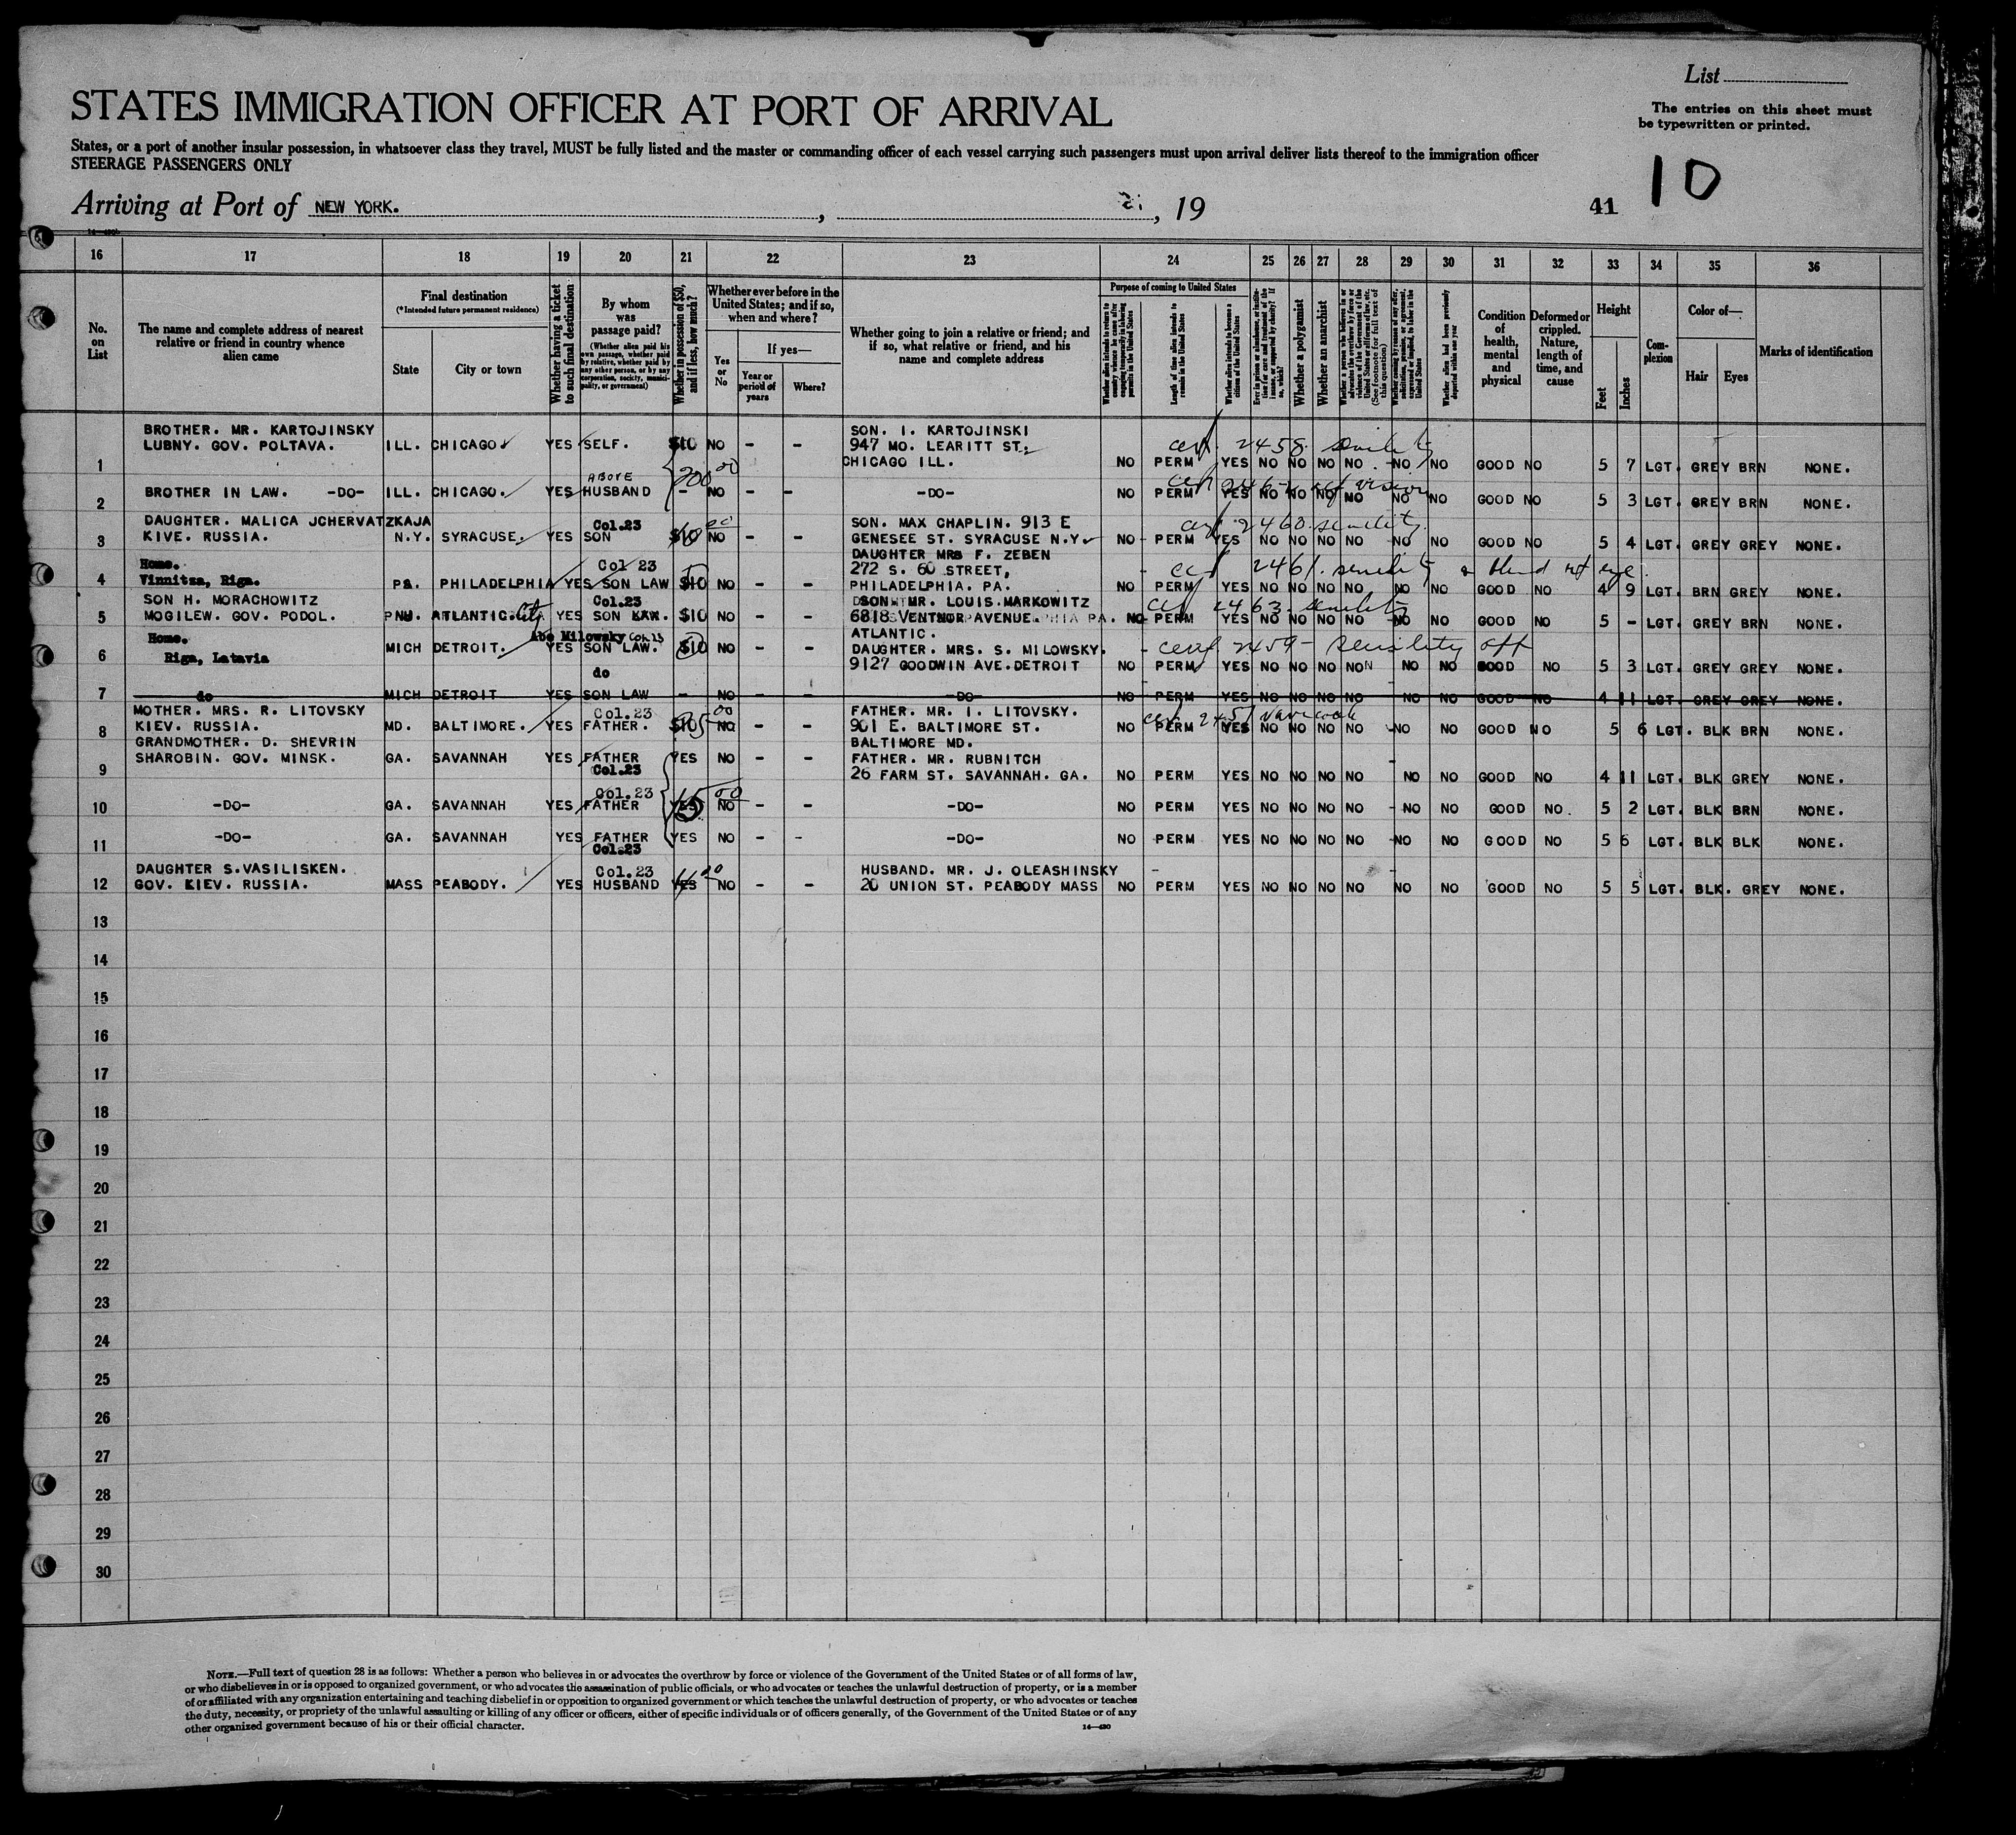 List
STATES IMMIGRATION OFFICER AT PORT OF ARRIVAL
The entries on this sheet must
be typewritten or printed.
States, or a port of another insular possession, in whatsoever class they travel, MUST be fully listed and the master or commanding officer of each vessel carrying such passengers must upon arrival deliver lists thereof to the immigration officer
STEERAGE PASSENGERS ONLY
10
Arriving at Port of NEW YORK. , , 19
41
16 17 18 19 20 21 22 23 24 25 26 27 28 29 30 31 32 33 34 35 36
No.
on
List
The name and complete address of nearest
relative or friend in country whence
alien came
Final destination
(*Intended future permanent residence)
State
City or town
Whether having a ticket
to such final destination
By whom
was
passage paid?
(Whether alien paid his
own passage, whether paid
by relative, whether paid by
any other person, or by any
corporation, society, munici-
pality, or government)
Whether in possession of $50,
and if less, how much?
Whether ever before in the
United States; and if so,
when and where?
Yes
or
No
If yes—
Year or
period of
years
Where?
Whether going to join a relative or friend; and
if so, what relative or friend, and his
name and complete address
Purpose of coming to United States
Whether alien intends to return to
country whence he came after
engaging temporarily in laboring
pursuits in the United States
Length of time alien intends to
remain in the United States
Whether alien intends to become a
citizen of the United States
Ever in prison or almshouse, or institu-
tion for care and treatment of the
insane, or supported by charity? If
so, which?
Whether a polygamist
Whether an anarchist
Whether a person who believes in or
advocates the overthrow by force or
violence of the Government of the
United States or all forms of law, etc.
(See footnote for full text of
this question)
Whether coming by reason of any offer,
solicitation, promise, or agreement,
expressed or implied, to labor in the
United States
Whether alien had been previously
deported within one year
Condition
of
health,
mental
and
physical
Deformed or
crippled.
Nature,
length of
time, and
cause
Height
Feet
Inches
Com-
plexion
Color of—
Hair
Eyes
Marks of identification
BROTHER. MR. KARTOJINSKY SON. I. KARTOJINSKI
LUBNY. GOV. POLTAVA. ILL. CHICAGO. YES SELF. $10 NO - - 947 MO. LEARITT ST. cert. 2458. senility
1 CHICAGO ILL. NO PERM YES NO NO NO NO NO NO GOOD NO 5 7 LGT. GREY BRN NONE.
ABOVE 200 00
2 BROTHER IN LAW. -DO- ILL. CHICAGO. YES HUSBAND - NO - - -DO- NO PERM YES NO NO NO NO NO NO GOOD NO 5 3 LGT. GREY BRN NONE.
DAUGHTER. MALICA JCHERVATZKAJA Col.23 SON. MAX CHAPLIN. 913 E cert 2460. senility.
3 KIVE. RUSSIA. N.Y. SYRACUSE. YES SON $10 NO - - GENESEE ST. SYRACUSE N.Y. NO PERM YES NO NO NO NO NO NO GOOD NO 5 4 LGT. GREY GREY NONE.
Home. Col 23 DAUGHTER MRS F. ZEBEN
272 S. 60 STREET, cert 2461. senility & blind rt eye.
4 Vinnitza, Riga. PA. PHILADELPHIA YES SON LAW $10 NO - - PHILADELPHIA. PA. NO PERM YES NO NO NO NO NO NO GOOD NO 4 9 LGT. BRN GREY NONE.
SON H. MORACHOWITZ Col.23 SON MR. LOUIS MARKOWITZ cert 2463. senility
5 MOGILEW. GOV. PODOL. ATLANTIC City YES SON LAW. $10 NO - - 6818 VENTNOR AVENUE NO PERM YES NO NO NO NO NO NO GOOD NO 5 - LGT. GREY BRN NONE.
ATLANTIC.
Home. Abe Milowsky Col 23
6 Riga, Latavia MICH DETROIT. YES SON LAW. $10 NO - - DAUGHTER. MRS. S. MILOWSKY. cert 2459 - senility
9127 GOODWIN AVE. DETROIT NO PERM YES NO NO NO NO NO NO GOOD NO 5 3 LGT. GREY GREY NONE.
do
7 do MICH DETROIT YES SON LAW - NO - - -DO- NO PERM YES NO NO NO NO NO NO GOOD NO 4 11 LGT. GREY GREY NONE.
MOTHER. MRS. R. LITOVSKY Col.23 FATHER. MR. I. LITOVSKY.
8 KIEV. RUSSIA. MD. BALTIMORE. YES FATHER. NO - - 901 E. BALTIMORE ST. NO PERM YES NO NO NO NO NO NO GOOD NO 5 6 LGT. BLK BRN NONE.
BALTIMORE MD.
GRANDMOTHER. D. SHEVRIN
9 SHAROBIN. GOV. MINSK. GA. SAVANNAH YES FATHER YES NO - - FATHER. MR. RUBNITCH
Col.23 26 FARM ST. SAVANNAH. GA. NO PERM YES NO NO NO NO NO NO GOOD NO 4 11 LGT. BLK GREY NONE.
Col.23 15 00
10 -DO- GA. SAVANNAH YES FATHER YES NO - - -DO- NO PERM YES NO NO NO NO NO NO GOOD NO. 5 2 LGT. BLK BRN NONE.
11 -DO- GA. SAVANNAH YES FATHER YES NO - - -DO- NO PERM YES NO NO NO NO NO NO GOOD NO 5 6 LGT. BLK BLK NONE.
Col.23
DAUGHTER S.VASILISKEN. Col.23 HUSBAND. MR. J. OLEASHINSKY
12 GOV. KIEV. RUSSIA. MASS PEABODY. YES HUSBAND YES NO - - 20 UNION ST. PEABODY MASS NO PERM YES NO NO NO NO NO NO GOOD NO 5 5 LGT. BLK. GREY NONE.
13
14
15
16
17
18
19
20
21
22
23
24
25
26
27
28
29
30
NOTE.—Full text of question 28 is as follows: Whether a person who believes in or advocates the overthrow by force or violence of the Government of the United States or of all forms of law,
or who disbelieves in or is opposed to organized government, or who advocates the assassination of public officials, or who advocates or teaches the unlawful destruction of property, or is a member
of or affiliated with any organization entertaining and teaching disbelief in or opposition to organized government or which teaches the unlawful destruction of property, or who advocates or teaches
the duty, necessity, or propriety of the unlawful assaulting or killing of any officer or officers, either of specific individuals or of officers generally, of the Government of the United States or of any
other organized government because of his or their official character.
14—430